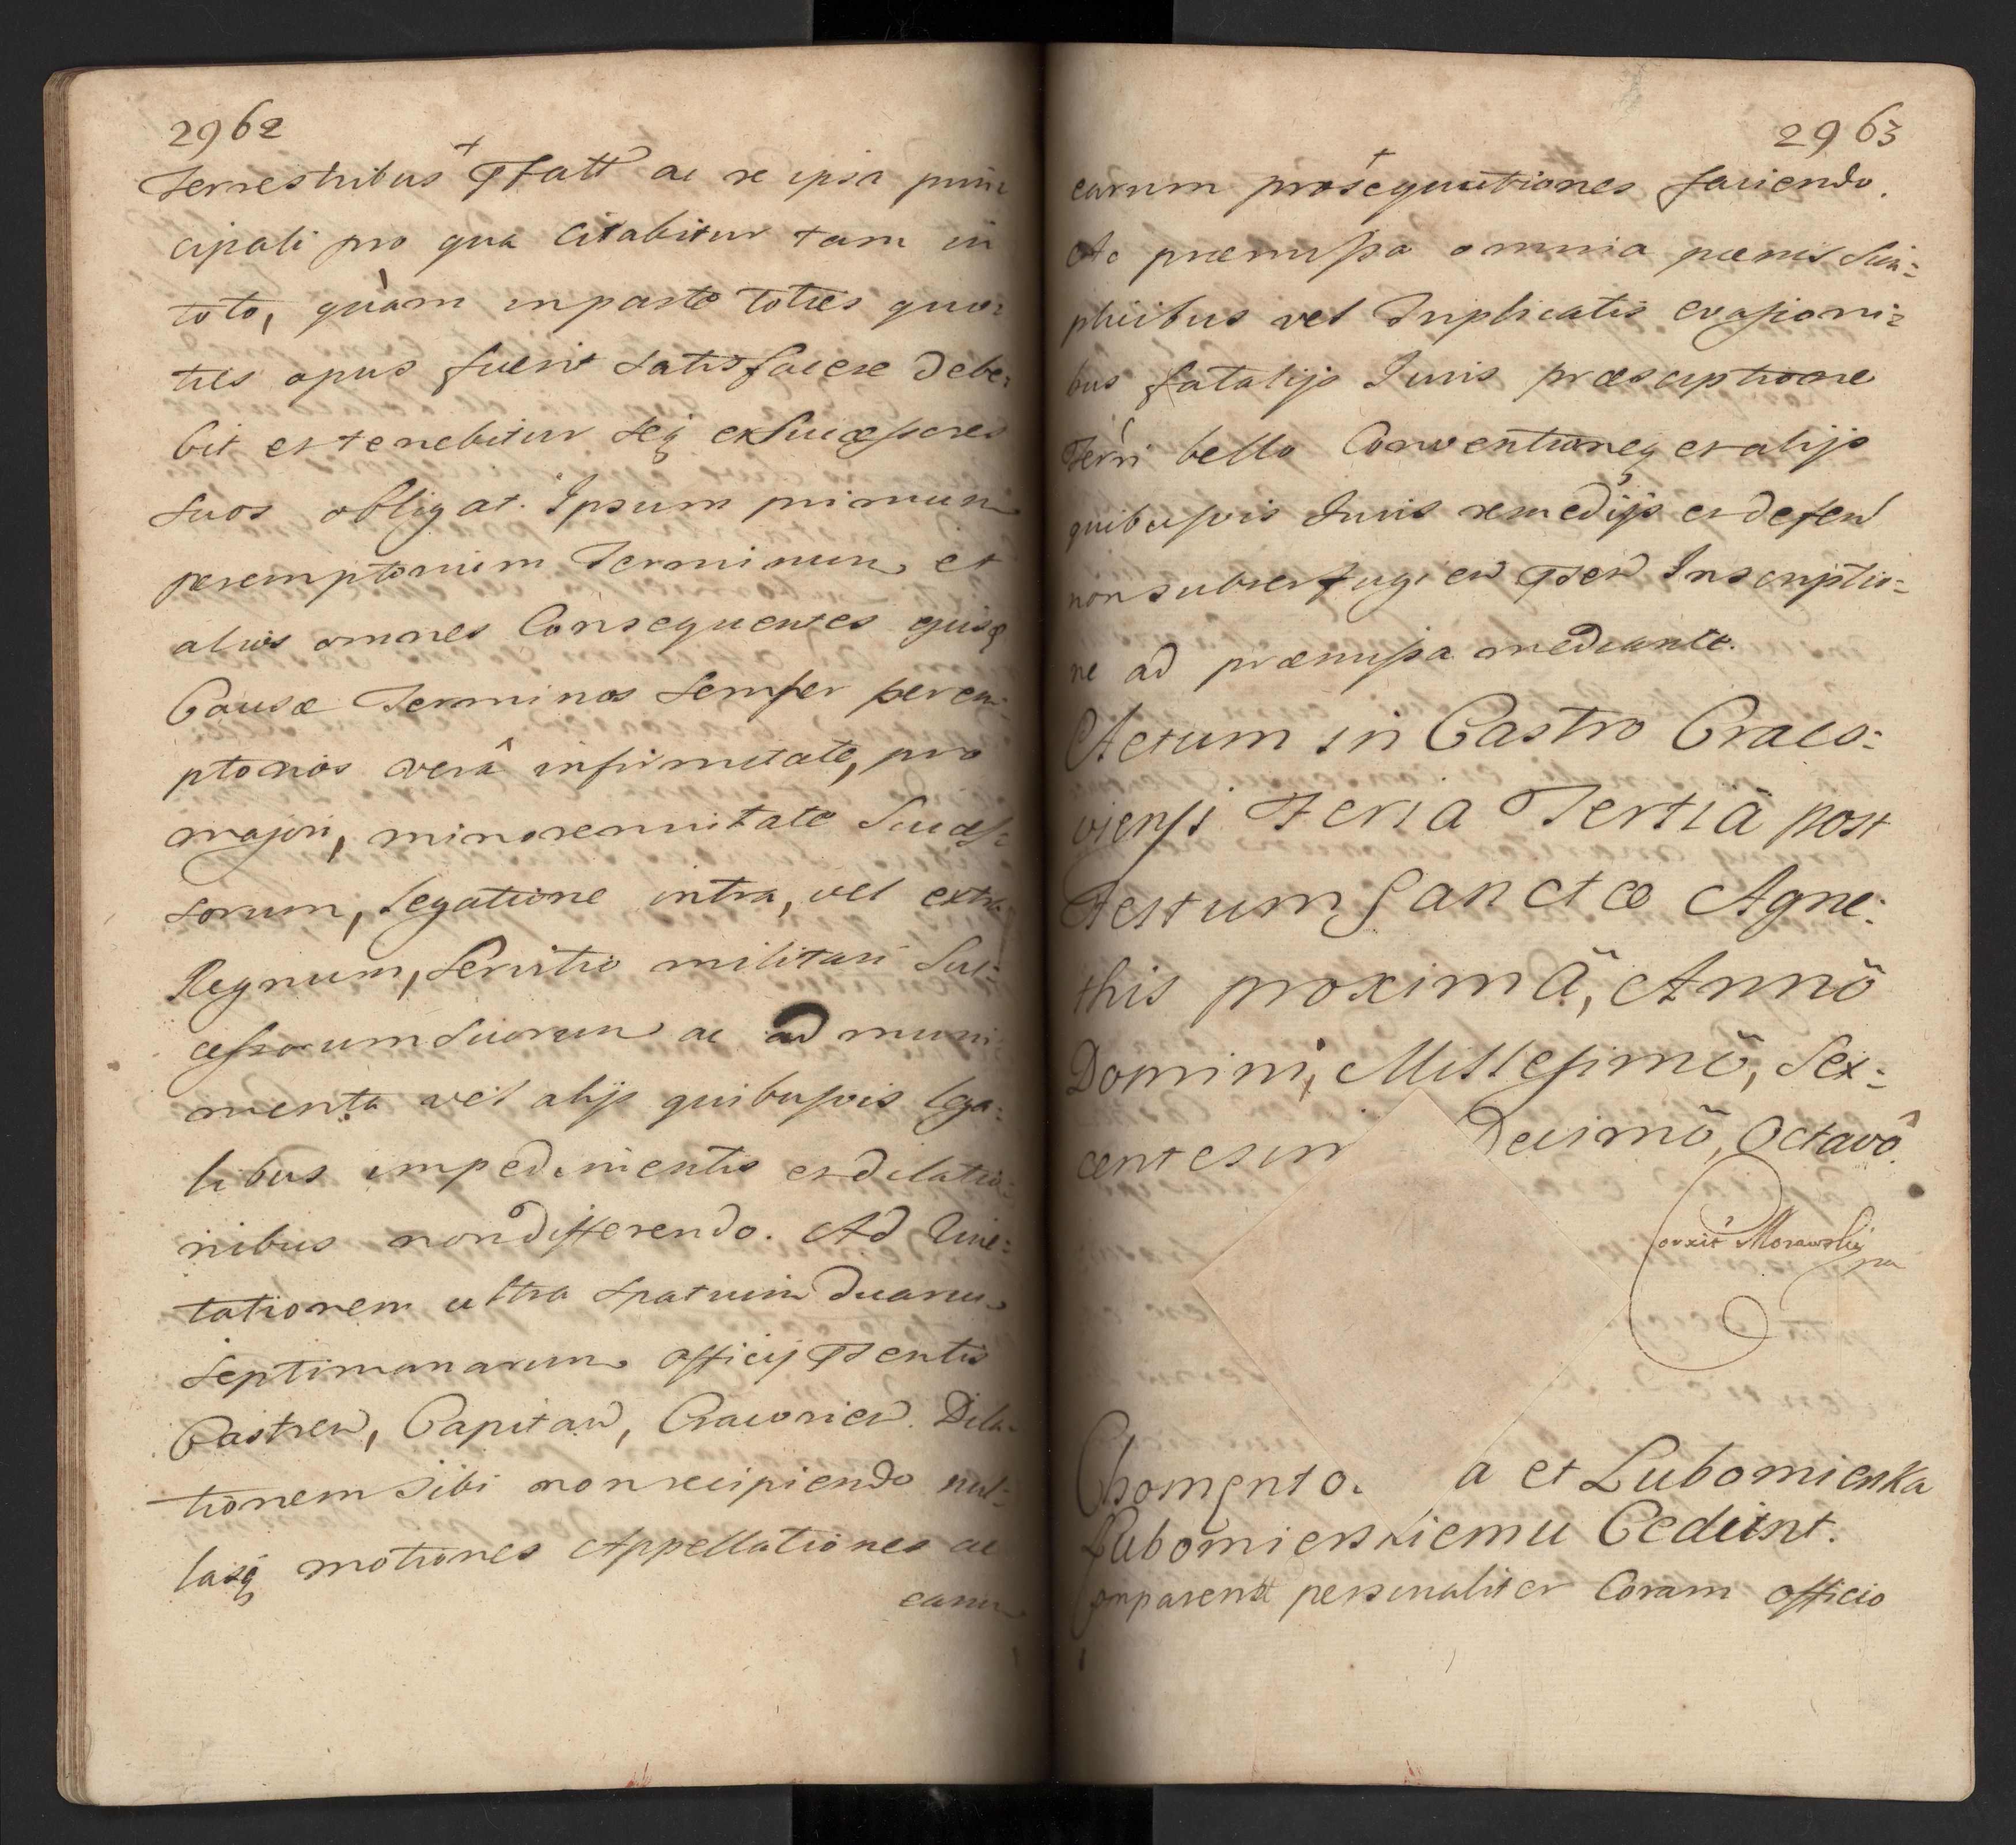 2962
Terrestribus Pfatt ac re ipsa prin
cipali pro qua citabitur tam in
toto, quàm inparte toties quo:
ties opus fuerit satisfacere debe:
bit et tenebitur seq et Successores
suos obligat. Ipsum primum
peremptorium Terminum et
alios omnes Consequentes ejusq
Causæ Terminos semper perem:
ptorios verâ infirmitate, pro
majori, minorennitate Success:
sorum, legatione intra, vel extra
Regnum, servitio militari Suc:
cessorum suorum ac ad muni:
menta vel alijs quibusvis lega:
libus impedimentis et dilatio:
nibus non differendo. Ad Quie:
tationem ultra spatium duarum
septimanarum officij Psentis
Castren, Capitan, Cracovien. Dila:
tionem sibi non recipiendo nul:
lasq motiones Appellationes ac
earum
2963
earum prosequutiones faciendo.
Ac præmissa omnia pænis Sim:
plicibus vel Triplicatis evasioni:
bus fatalijs Juris præscriptione
Terri bello Conventioneq et alijs
quibusvis Juris remedijs et defen
non subterfugien Psen Inscriptio:
ne ad præmissa mediante.
Actum in Castro Craco:
viensi Feria Tertiâ post
Festum Sanctæ Agne:
this proximâ, Annô
Domini, Millesimô, Sex:
centesim Decimô, Octavô.
Corxit Morawski
Chomento a et Lubomierska
Lubomierskiemu Cedunt.
Comparens personaliter Coram officio